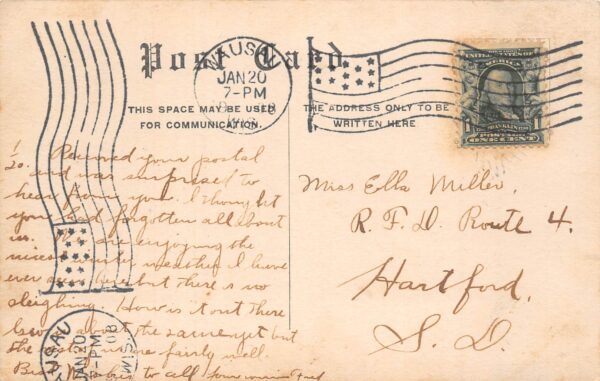 Post Card
WAUSAU
JAN 20
7-PM
THIS SPACE MAY BE USED
FOR COMMUNICATION.
THE ADDRESS ONLY TO BE
WRITTEN HERE
UNITED STATES OF AMERICA
FRANKLIN
POSTAGE
ONE CENT
1/20. Received your postal
and was surprised to
hear from you. I thought
you had forgotten all about
us. We are enjoying the
nicest winter weather I have
ever seen here but there is no
sleighing. How is it out there
about the same yet but
the are fairly well.
Best to all
Miss Ella Miller,
R. F. D. Route 4.
Hartford,
S. D.
WAUSAU
JAN 20
7-PM
08
WIS.